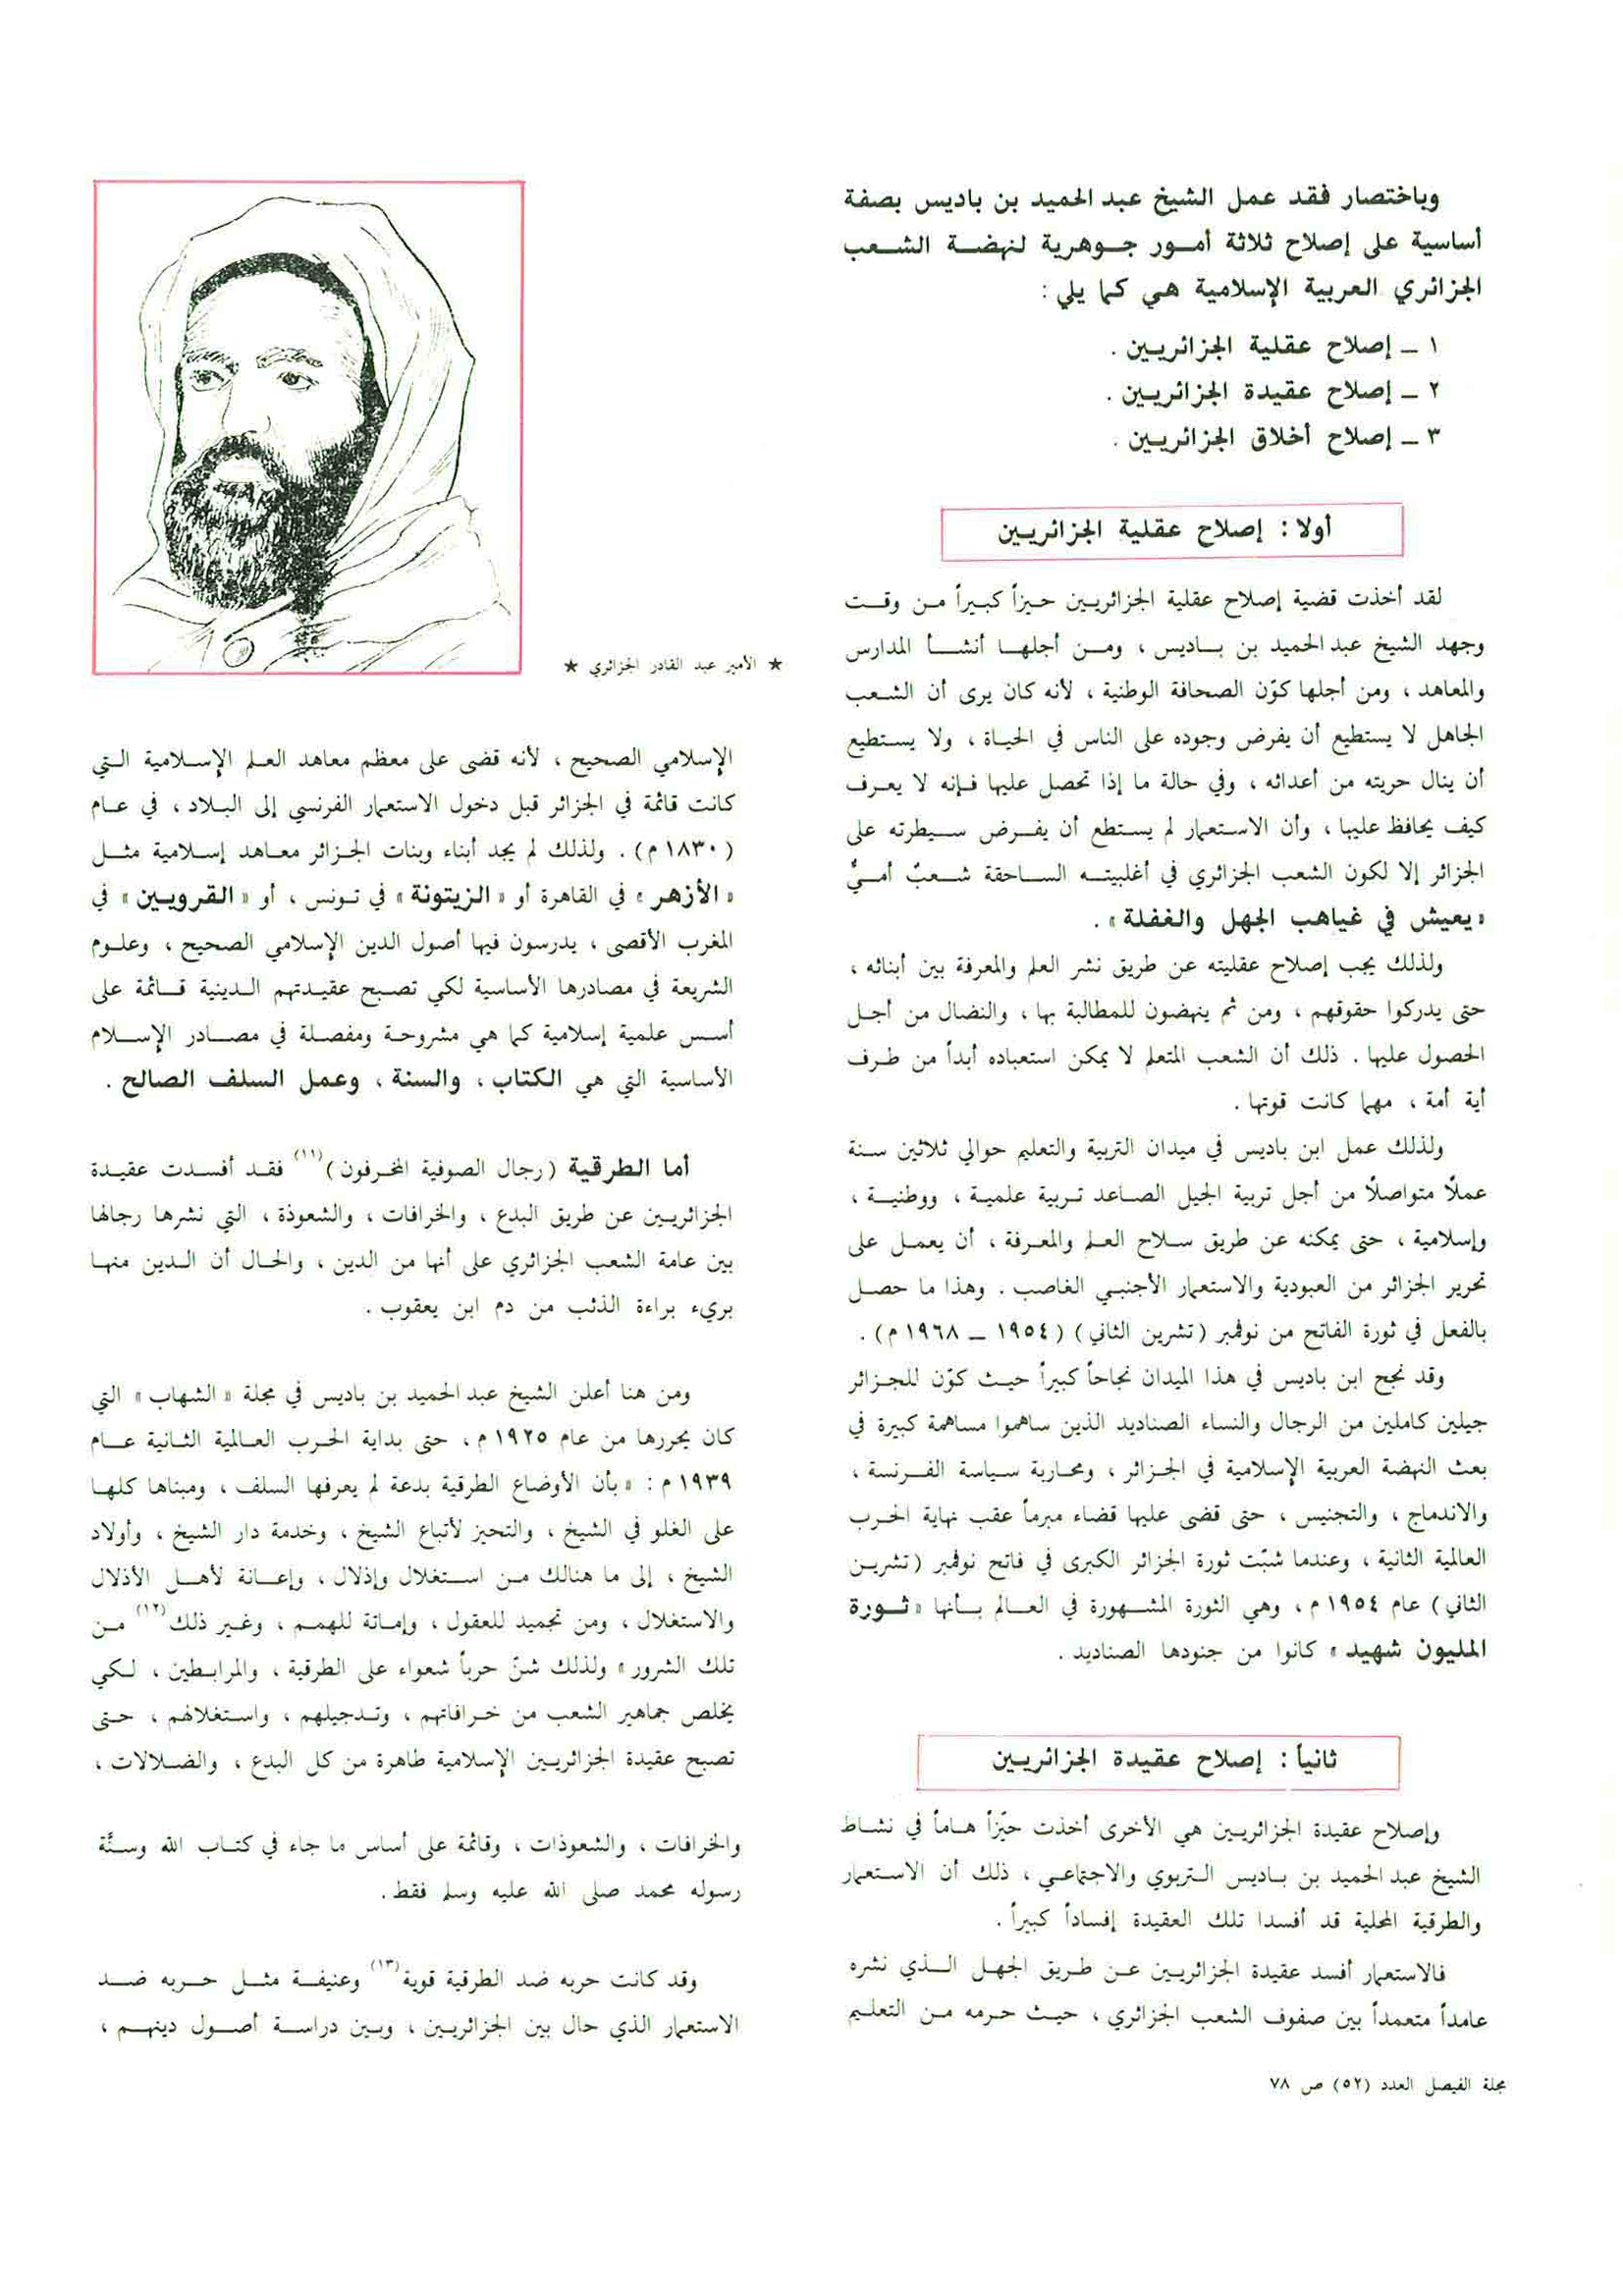 وباختصار فقد عمل الشيخ عبد الحميد بن باديس بصفة
أساسية على إصلاح ثلاثة أمور جوهرية لنهضة الشعب
الجزائري العربية الإسلامية هي كما يلي :
١ ـ إصلاح عقلية الجزائريين .
٢ ـ إصلاح عقيدة الجزائريين .
٣ ـ إصلاح أخلاق الجزائريين .
أولا : إصلاح عقلية الجزائريين
لقد أخذت قضية إصلاح عقلية الجزائريين حيزاً كبيراً من وقت
وجهد الشيخ عبد الحميد بن باديس ، ومن أجلها أنشأ المدارس
والمعاهد ، ومن أجلها كوّن الصحافة الوطنية ، لأنه كان يرى أن الشعب
الجاهل لا يستطيع أن يفرض وجوده على الناس في الحياة ، ولا يستطيع
أن ينال حريته من أعدائه ، وفي حالة ما إذا تحصل عليها فإنه لا يعرف
كيف يحافظ عليها ، وأن الاستعمار لم يستطع أن يفرض سيطرته على
الجزائر إلا لكون الشعب الجزائري في أغلبيته الساحقة شعبٌ أميٌّ
« يعيش في غياهب الجهل والغفلة » .
ولذلك يجب إصلاح عقليته عن طريق نشر العلم والمعرفة بين أبنائه ،
حتى يدركوا حقوقهم ، ومن ثم ينهضون للمطالبة بها ، والنضال من أجل
الحصول عليها . ذلك أن الشعب المتعلم لا يمكن استعباده أبداً من طرف
أية أمة ، مهما كانت قوتها .
ولذلك عمل ابن باديس في ميدان التربية والتعليم حوالي ثلاثين سنة
عملاً متواصلاً من أجل تربية الجيل الصاعد تربية علمية ، ووطنية ،
وإسلامية ، حتى يمكنه عن طريق سلاح العلم والمعرفة ، أن يعمل على
تحرير الجزائر من العبودية والاستعمار الأجنبي الغاصب . وهذا ما حصل
بالفعل في ثورة الفاتح من نوفمبر ( تشرين الثاني ) ( ١٩٥٤ ـ ١٩٦٨ م ) .
وقد نجح ابن باديس في هذا الميدان نجاحاً كبيراً حيث كوّن للجزائر
جيلين كاملين من الرجال والنساء الصناديد الذين ساهموا مساهمة كبيرة في
بعث النهضة العربية الإسلامية في الجزائر ، ومحاربة سياسة الفرنسة ،
والاندماج ، والتجنيس ، حتى قضى عليها قضاء مبرماً عقب نهاية الحرب
العالمية الثانية ، وعندما شبّت ثورة الجزائر الكبرى في فاتح نوفمبر ( تشرين
الثاني ) عام ١٩٥٤ م ، وهي الثورة المشهورة في العالم بأنها « ثورة
المليون شهيد » كانوا من جنودها الصناديد .
ثانياً : إصلاح عقيدة الجزائريين
وإصلاح عقيدة الجزائريين هي الأخرى أخذت حيّزاً هاماً في نشاط
الشيخ عبد الحميد بن باديس التربوي والاجتماعي ، ذلك أن الاستعمار
والطرقية المحلية قد أفسدا تلك العقيدة إفساداً كبيراً .
فالاستعمار أفسد عقيدة الجزائريين عن طريق الجهل الذي نشره
عامداً متعمداً بين صفوف الشعب الجزائري ، حيث حرمه من التعليم
★ الأمير عبد القادر الجزائري ★
الإسلامي الصحيح ، لأنه قضى على معظم معاهد العلم الإسلامية التي
كانت قائمة في الجزائر قبل دخول الاستعمار الفرنسي إلى البلاد ، في عام
( ١٨٣٠ م ) . ولذلك لم يجد أبناء وبنات الجزائر معاهد إسلامية مثل
« الأزهر » في القاهرة أو « الزيتونة » في تونس ، أو « القرويين » في
المغرب الأقصى ، يدرسون فيها أصول الدين الإسلامي الصحيح ، وعلوم
الشريعة في مصادرها الأساسية لكي تصبح عقيدتهم الدينية قائمة على
أسس علمية إسلامية كما هي مشروحة ومفصلة في مصادر الإسلام
الأساسية التي هي الكتاب ، والسنة ، وعمل السلف الصالح .
أما الطرقية ( رجال الصوفية المخرفون )(١١) فقد أفسدت عقيدة
الجزائريين عن طريق البدع ، والخرافات ، والشعوذة ، التي نشرها رجالها
بين عامة الشعب الجزائري على أنها من الدين ، والحال أن الدين منها
بريء براءة الذئب من دم ابن يعقوب .
ومن هنا أعلن الشيخ عبد الحميد بن باديس في مجلة « الشهاب » التي
كان يحررها من عام ١٩٢٥ م ، حتى بداية الحرب العالمية الثانية عام
١٩٣٩ م : « بأن الأوضاع الطرقية بدعة لم يعرفها السلف ، ومبناها كلها
على الغلو في الشيخ ، والتحيز لأتباع الشيخ ، وخدمة دار الشيخ ، وأولاد
الشيخ ، إلى ما هنالك من استغلال وإذلال ، وإعانة لأهل الأذلال
والاستغلال ، ومن تجميد للعقول ، وإماتة للهمم ، وغير ذلك(١٢) من
تلك الشرور » ولذلك شنّ حرباً شعواء على الطرقية ، والمرابطين ، لكي
يخلص جماهير الشعب من خرافاتهم ، وتدجيلهم ، واستغلالهم ، حتى
تصبح عقيدة الجزائريين الإسلامية طاهرة من كل البدع ، والضلالات ،
والخرافات ، والشعوذات ، وقائمة على أساس ما جاء في كتاب الله وسنَّة
رسوله محمد صلى الله عليه وسلم فقط .
وقد كانت حربه ضد الطرقية قوية(١٣) وعنيفة مثل حربه ضد
الاستعمار الذي حال بين الجزائريين ، وبين دراسة أصول دينهم ،
مجلة الفيصل العدد (٥٢) ص ٧٨